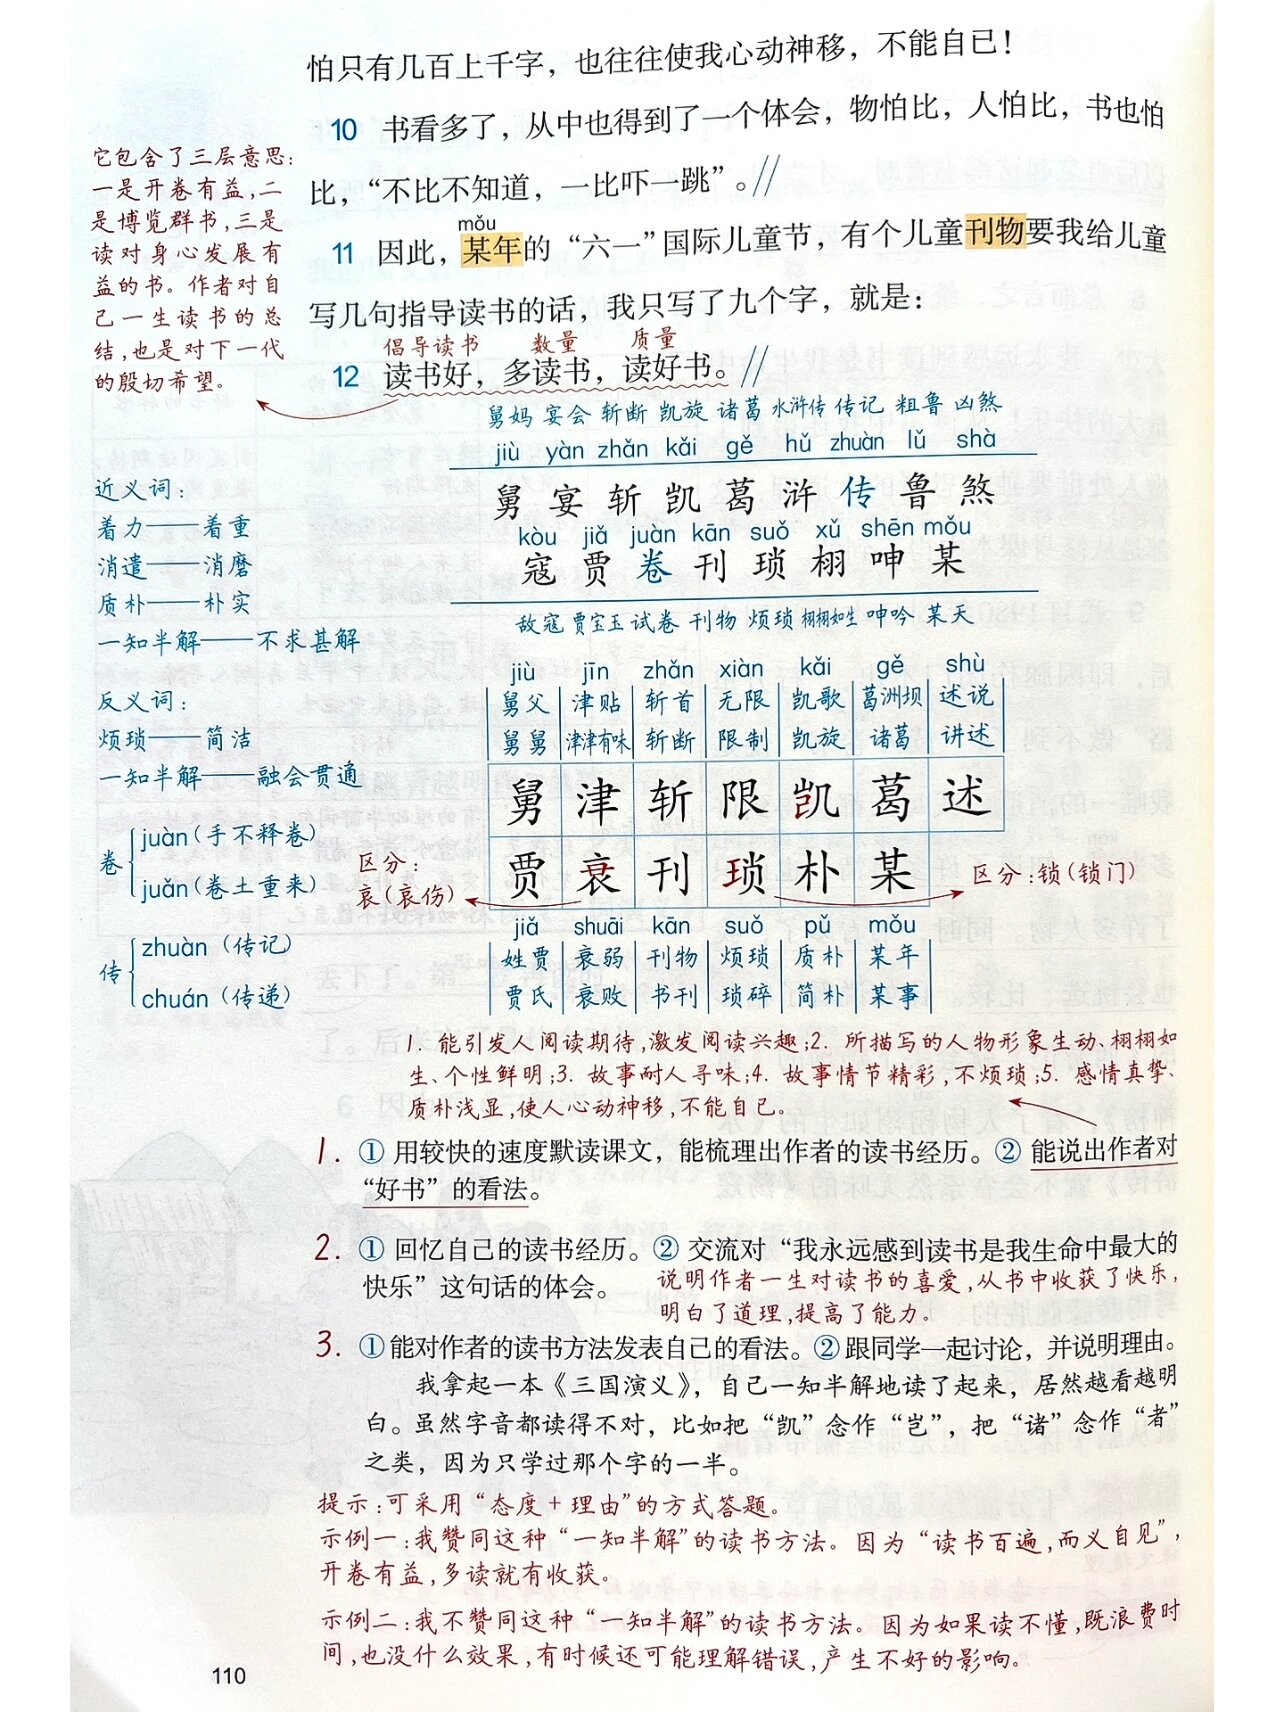 怕只有几百上千字，也往往使我心动神移，不能自已！
10 书看多了，从中也得到了一个体会，物怕比，人怕比，书也怕
比，“不比不知道，一比吓一跳”。//
mǒu
11 因此，某年的“六一”国际儿童节，有个儿童刊物要我给儿童
写几句指导读书的话，我只写了九个字，就是：
倡导读书 数量 质量
12 读书好，多读书，读好书。//
它包含了三层意思：
一是开卷有益，二
是博览群书，三是
读对身心发展有
益的书。作者对自
己一生读书的总
结，也是对下一代
的殷切希望。
舅妈 宴会 斩断 凯旋 诸葛 水浒传 传记 粗鲁 凶煞
jiù yàn zhǎn kǎi gě hǔ zhuàn lǔ shà
舅 宴 斩 凯 葛 浒 传 鲁 煞
kòu jiǎ juàn kān suǒ xǔ shēn mǒu
寇 贾 卷 刊 琐 栩 呻 某
敌寇 贾宝玉 试卷 刊物 烦琐 栩栩如生 呻吟 某天
近义词：
着力——着重
消遣——消磨
质朴——朴实
一知半解——不求甚解
反义词：
烦琐——简洁
一知半解——融会贯通
卷
juàn（手不释卷）
juǎn（卷土重来）
传
zhuàn（传记）
chuán（传递）
jiù jīn zhǎn xiàn kǎi gě shù
舅父 津贴 斩首 无限 凯歌 葛洲坝 述说
舅舅 津津有味 斩断 限制 凯旋 诸葛 讲述
舅 津 斩 限 凯 葛 述
贾 衰 刊 琐 朴 某
区分：
哀（哀伤）
区分：锁（锁门）
jiǎ shuāi kān suǒ pǔ mǒu
姓贾 衰弱 刊物 烦琐 质朴 某年
贾氏 衰败 书刊 琐碎 简朴 某事
1. 能引发人阅读期待，激发阅读兴趣；2. 所描写的人物形象生动、栩栩如
生、个性鲜明；3. 故事耐人寻味；4. 故事情节精彩，不烦琐；5. 感情真挚、
质朴浅显，使人心动神移，不能自已。
1. ① 用较快的速度默读课文，能梳理出作者的读书经历。② 能说出作者对
“好书”的看法。
2. ① 回忆自己的读书经历。② 交流对“我永远感到读书是我生命中最大的
快乐”这句话的体会。
说明作者一生对读书的喜爱，从书中收获了快乐，
明白了道理，提高了能力。
3. ①能对作者的读书方法发表自己的看法。②跟同学一起讨论，并说明理由。
我拿起一本《三国演义》，自己一知半解地读了起来，居然越看越明
白。虽然字音都读得不对，比如把“凯”念作“岂”，把“诸”念作“者”
之类，因为只学过那个字的一半。
提示：可采用“态度+理由”的方式答题。
示例一：我赞同这种“一知半解”的读书方法。因为“读书百遍，而义自见”，
开卷有益，多读就有收获。
示例二：我不赞同这种“一知半解”的读书方法。因为如果读不懂，既浪费时
间，也没什么效果，有时候还可能理解错误，产生不好的影响。
110